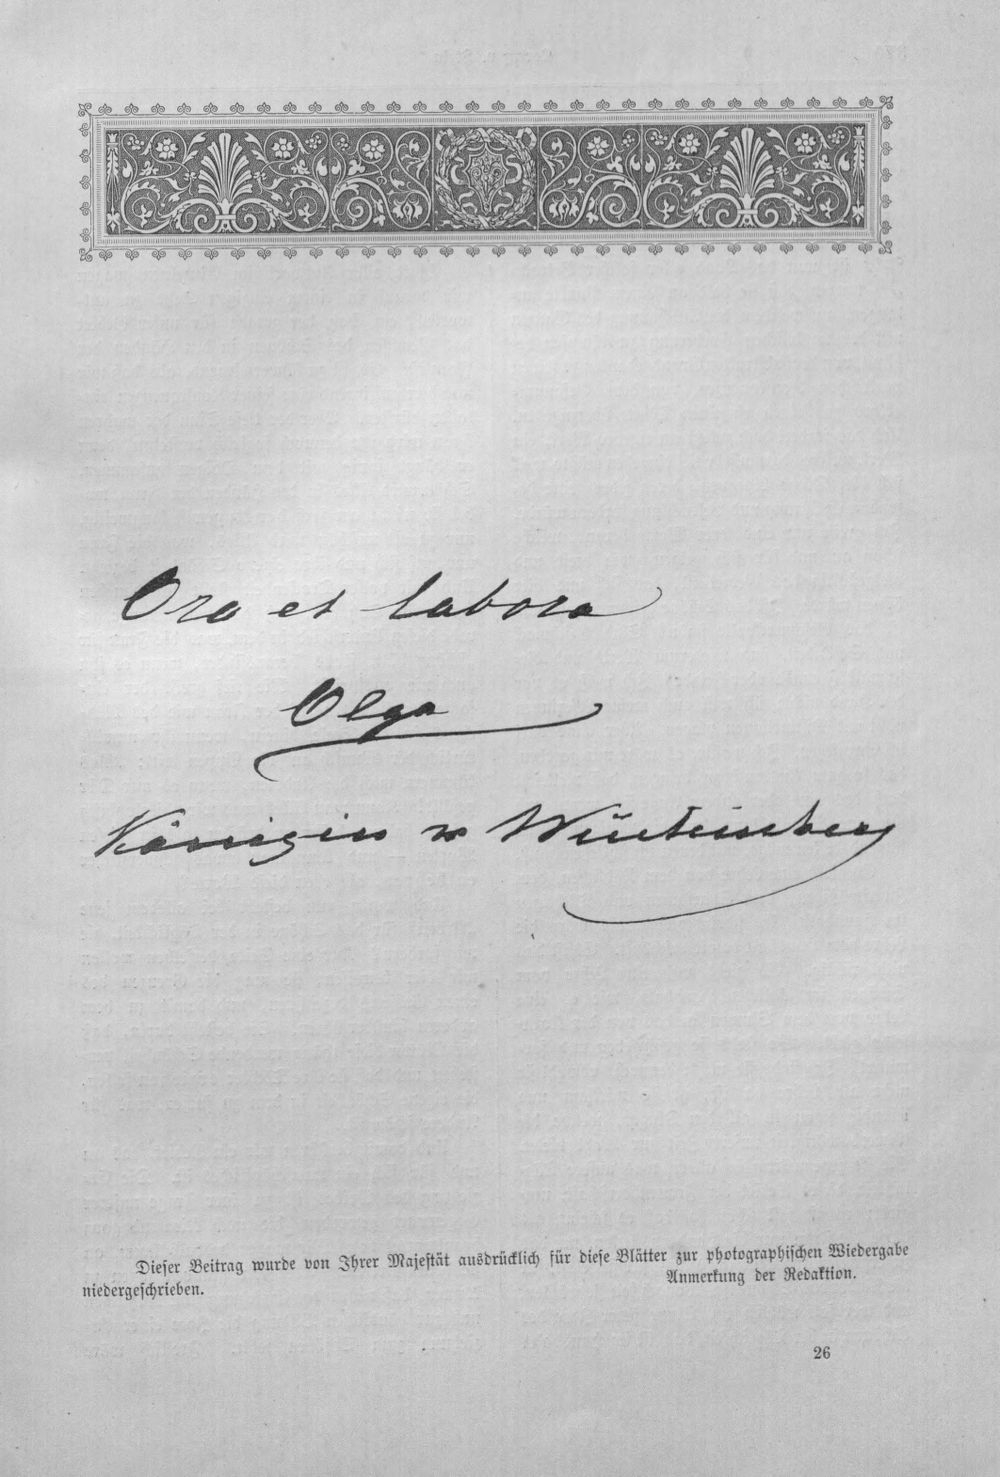 Ora et labora
Olga
Königin v Würtemberg
Dieser Beitrag wurde von Ihrer Majestät ausdrücklich für diese Blätter zur photographischen Wiedergabe
niedergeschrieben.
Anmerkung der Redaktion.
26